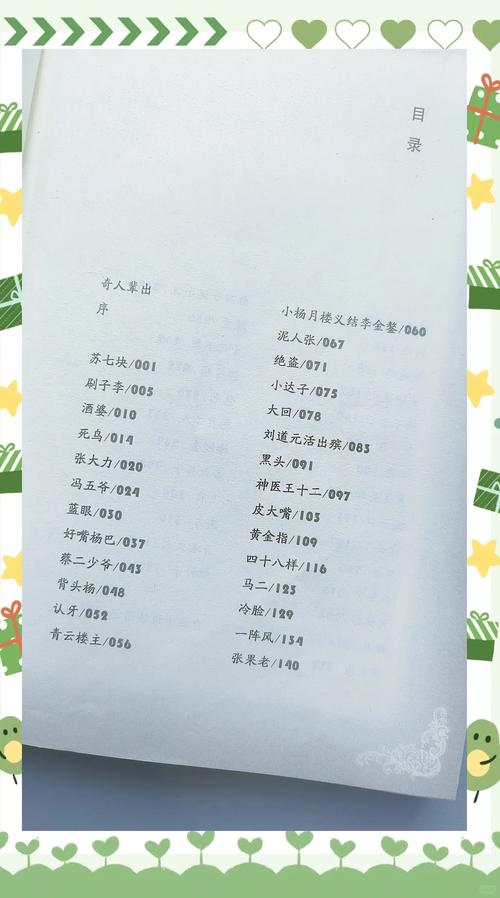 目
录
奇人辈出
序
苏七块/001
刷子李/005
酒婆/010
死鸟/014
张大力/020
冯五爷/024
蓝眼/030
好嘴杨巴/037
蔡二少爷/043
背头杨/048
认牙/052
青云楼主/056
小杨月楼义结李金鏊/060
泥人张/067
绝盗/071
小达子/075
大回/078
刘道元活出殡/083
黑头/091
神医王十二/097
皮大嘴/103
黄金指/109
四十八样/116
马二/123
冷脸/129
一阵风/134
张果老/140